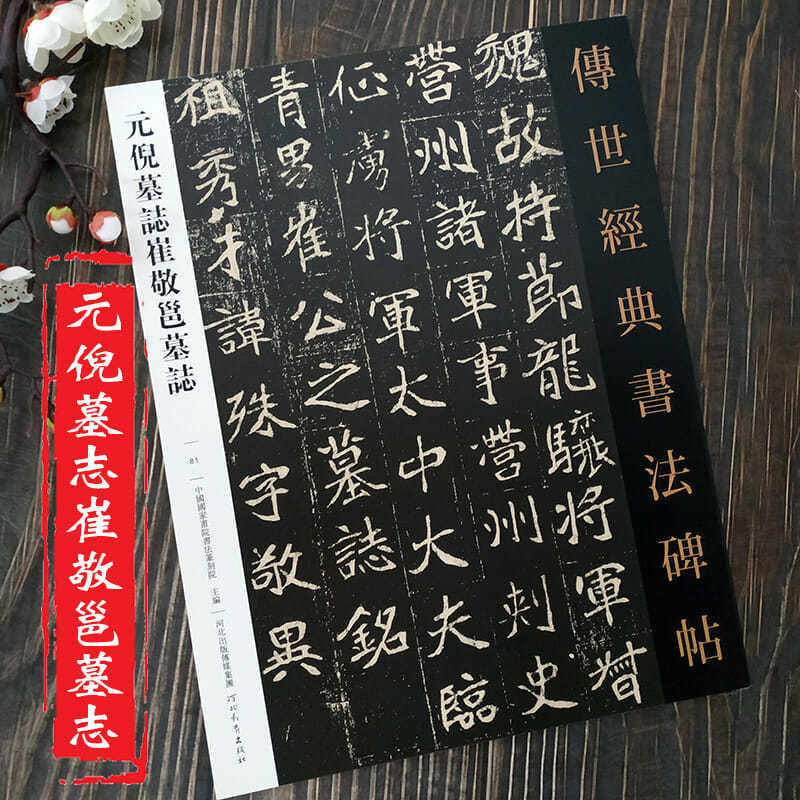 傳世經典書法碑帖
魏故持節龍驤將軍督
營州諸軍事營州刺史
征虜將軍太中大夫臨
青男崔公之墓誌銘
祖秀才諱殊字敬異
元倪墓誌崔敬邕墓誌
81
中國國家畫院書法篆刻院 主編
河北出版傳媒集團
河北教育出版社
元倪墓志崔敬邕墓志